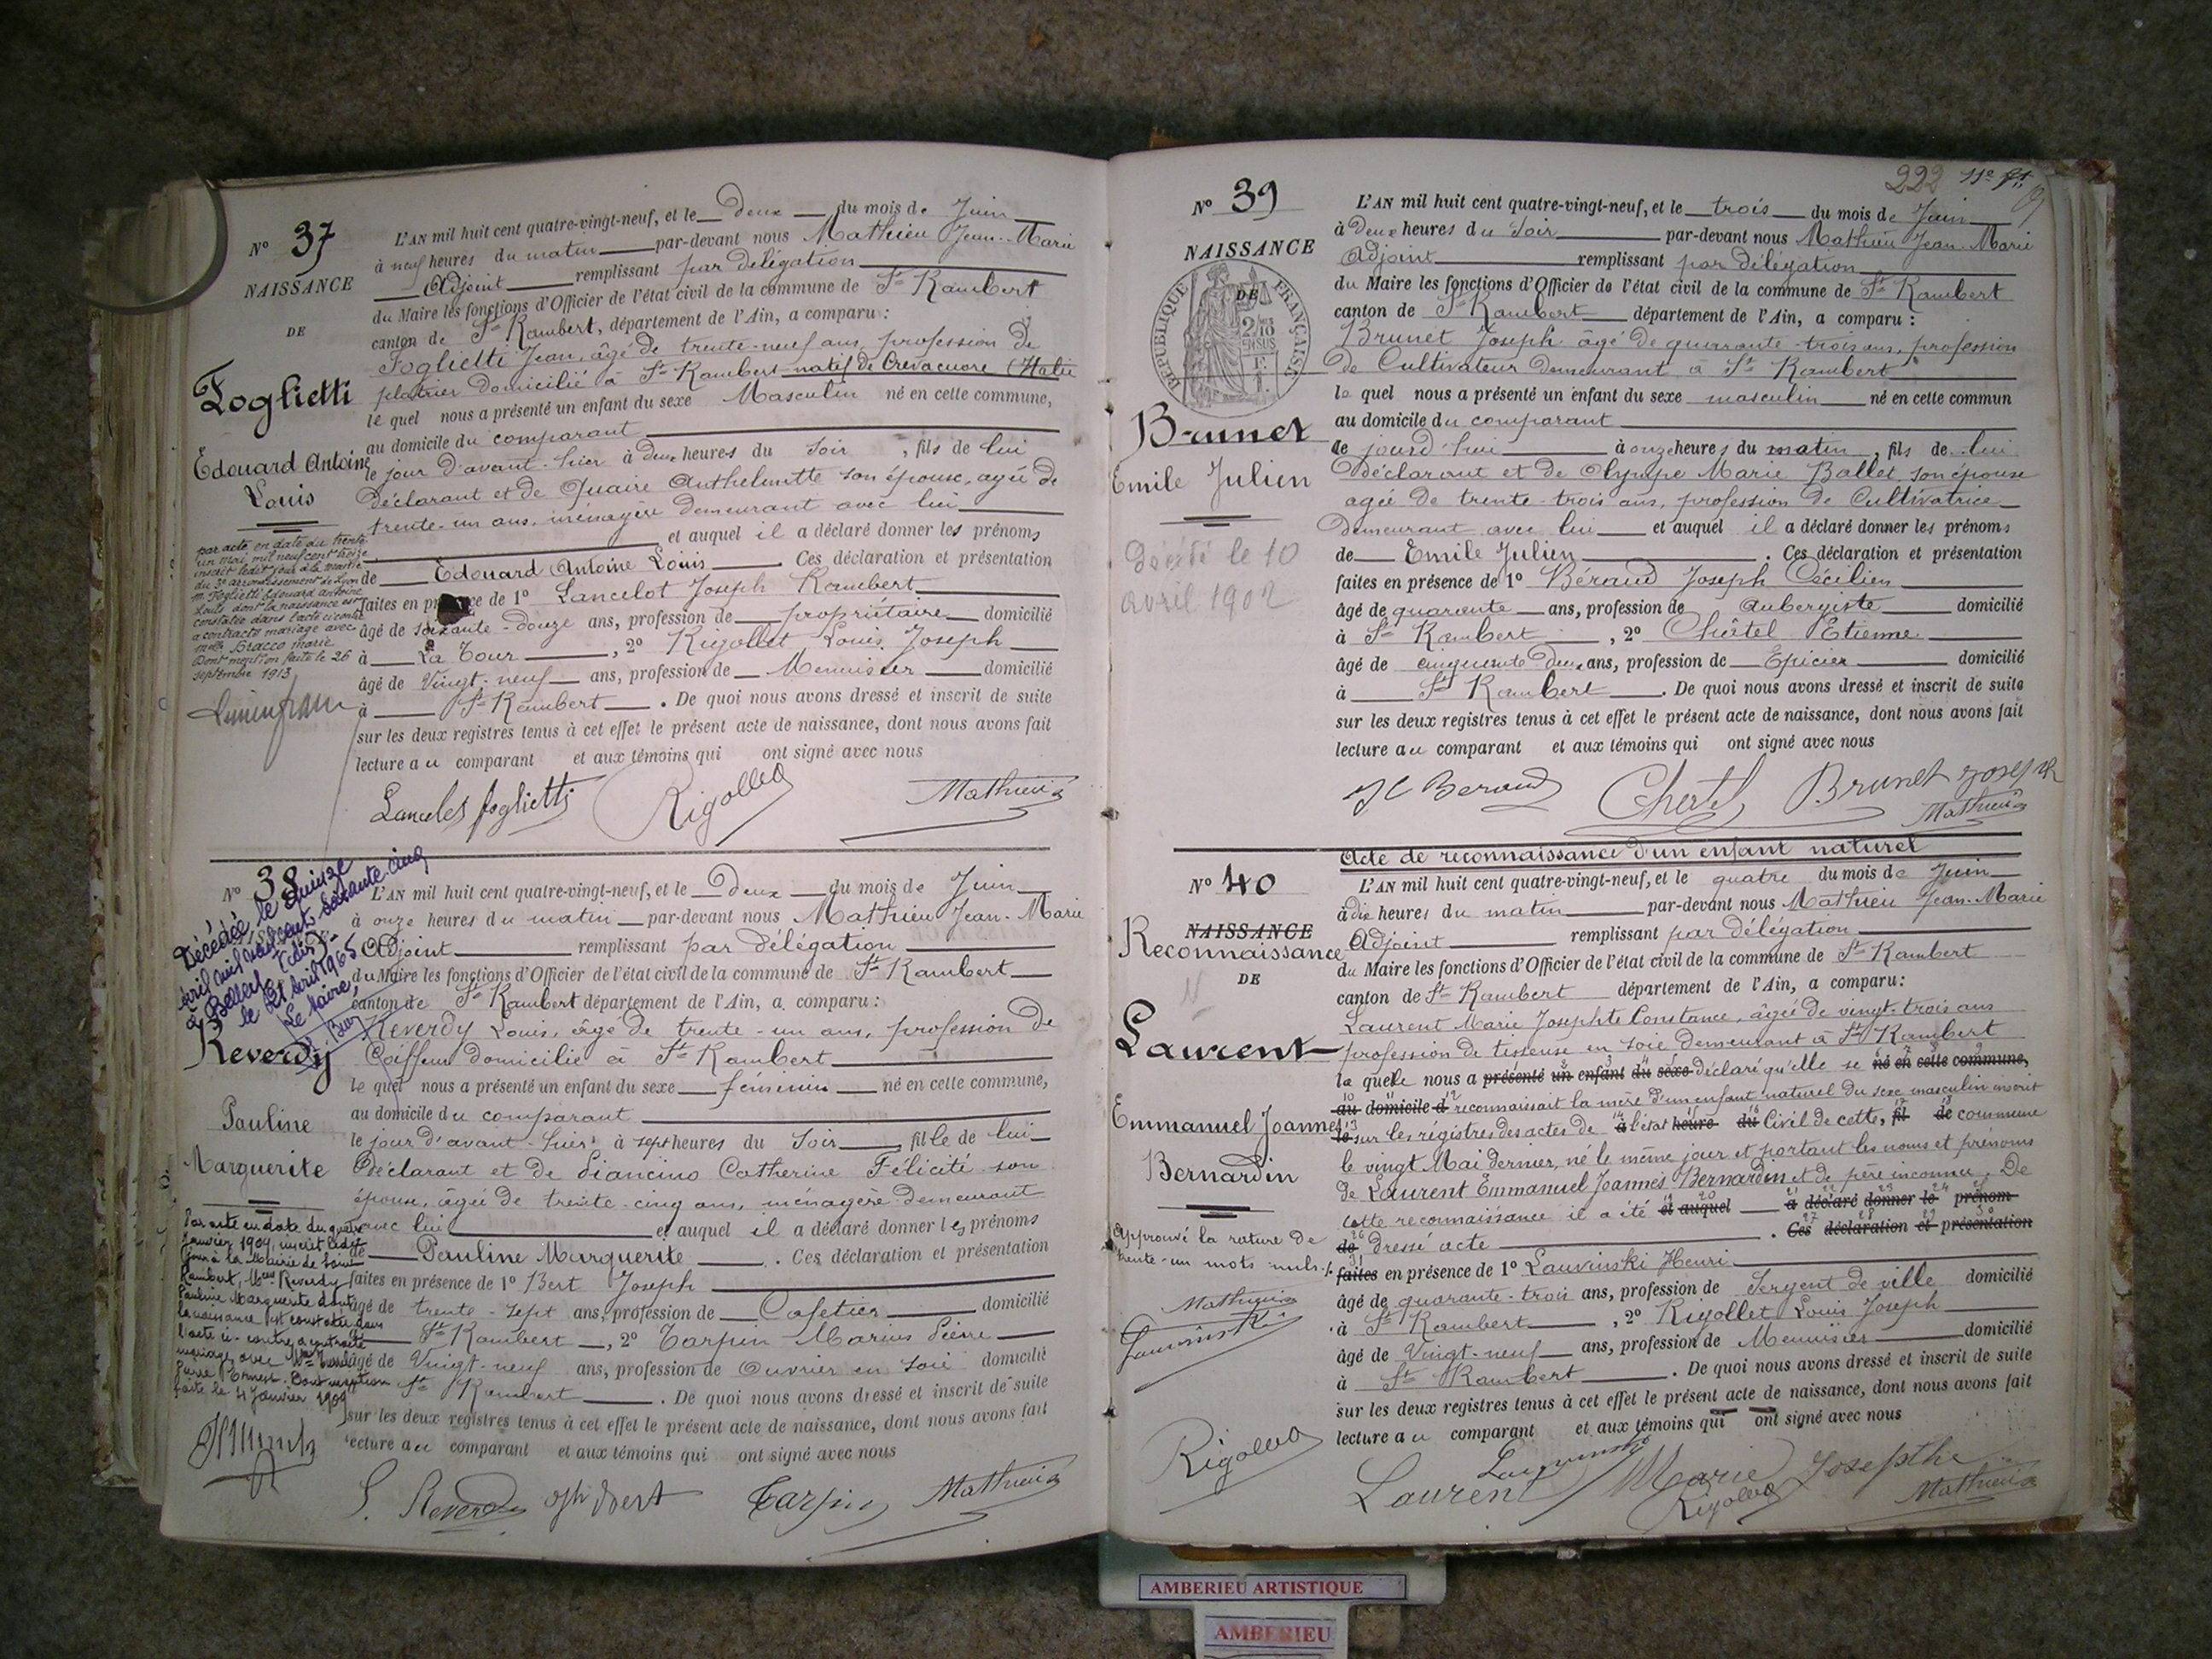 N° 37
NAISSANCE
DE
Foglietti
Edouard Antoine
Louis
par acte en date du trente
un mai mil neuf cent treize
inscrit ledit jour à la mairie
du 3e arrondissement de Lyon
M. Foglietti Edouard Antoine
Louis dont la naissance est
constatée dans l'acte ci contre
a contracté mariage avec
melle Bracco Marie
Dont mention faite le 26
septembre 1913
L'AN mil huit cent quatre-vingt-neuf, et le deux du mois de Juin
à neuf heures du matin par-devant nous Mathieu Jean-Marie
Adjoint remplissant par délégation
du Maire les fonctions d'Officier de l'état civil de la commune de St Rambert
canton de St Rambert, département de l'Ain, a comparu :
Foglietti Jean, âgé de trente-neuf ans, profession de
platrier domicilié à St Rambert natif de Crevacuore (Italie
le quel nous a présenté un enfant du sexe Masculin né en cette commune,
au domicile du comparant
le jour d'avant-hier à deux heures du soir, fils de lui
déclarant et de Quaire Anthelmette son épouse, agée de
trente-un ans, ménagère demeurant avec lui
et auquel il a déclaré donner les prénoms
de Edouard Antoine Louis Ces déclaration et présentation
faites en présence de 1° Lancelot Joseph Rambert
âgé de soixante-douze ans, profession de propriétaire domicilié
à La Tour, 2° Rigollet Louis Joseph
âgé de Vingt-neuf ans, profession de Menuisier domicilié
à St Rambert. De quoi nous avons dressé et inscrit de suite
sur les deux registres tenus à cet effet le présent acte de naissance, dont nous avons fait
lecture au comparant et aux témoins qui ont signé avec nous
Lancelot foglietti Rigollet Mathieu
N° 38
Décédée le quinze
avril mil neuf cent soixante-cinq
à Belley (Ain)
le 21 Avril 1965
Le Maire,
Reverdy
Pauline
Marguerite
Par acte en date du quatre
Janvier 1909, inscrit ledit
jour à la Mairie de Saint
Rambert, Melle Reverdy
Pauline Marguerite dont
la naissance est constatée dans
l'acte ci-contre a contracté
mariage avec Mr
Pierre Ernest. Dont mention
faite le 4 Janvier 1909
L'AN mil huit cent quatre-vingt-neuf, et le Deux du mois de Juin
à onze heures du matin par-devant nous Mathieu Jean-Marie
Adjoint remplissant par délégation
du Maire les fonctions d'Officier de l'état civil de la commune de St Rambert
canton de St Rambert département de l'Ain, a comparu :
Reverdy Louis, âgé de trente-un ans, profession de
Coiffeur domicilié à St Rambert
le quel nous a présenté un enfant du sexe féminin né en cette commune,
au domicile du comparant
le jour d'avant-hier à sept heures du soir, fille de lui
déclarant et de Liancino Catherine Félicité son
épouse, âgée de trente-cinq ans, ménagère demeurant
avec lui et auquel il a déclaré donner les prénoms
de Pauline Marguerite. Ces déclaration et présentation
faites en présence de 1° Bert Joseph
âgé de trente-sept ans, profession de Cafetier domicilié
à St Rambert, 2° Tarpin Marius Pierre
âgé de Vingt-neuf ans, profession de Ouvrier en soie domicilié
St Rambert. De quoi nous avons dressé et inscrit de suite
sur les deux registres tenus à cet effet le présent acte de naissance, dont nous avons fait
lecture au comparant et aux témoins qui ont signé avec nous
L. Reverdy Jph Bert Tarpin Mathieu
222
N° 39
NAISSANCE
DE
REPUBLIQUE FRANÇAISE
2/10 EN SUS
Brunet
Emile Julien
Décédé le 10
avril 1902
L'AN mil huit cent quatre-vingt-neuf, et le trois du mois de Juin
à Deux heures du soir par-devant nous Mathieu Jean-Marie
Adjoint remplissant par délégation
du Maire les fonctions d'Officier de l'état civil de la commune de St Rambert
canton de St Rambert département de l'Ain, a comparu :
Brunet Joseph âgé de quarante-trois ans, profession
de Cultivateur demeurant à St Rambert
le quel nous a présenté un enfant du sexe masculin né en cette commun
au domicile du comparant
le jourd'hui à onze heures du matin, fils de lui
déclarant et de Olympe Marie Ballet son épouse
agée de trente-trois ans, profession de Cultivatrice
demeurant avec lui et auquel il a déclaré donner les prénoms
de Emile Julien. Ces déclaration et présentation
faites en présence de 1° Béraud Joseph Cécilien
âgé de quarante ans, profession de Aubergiste domicilié
à St Rambert, 2° Châtel Etienne
âgé de cinquante deux ans, profession de Epicier domicilié
à St Rambert. De quoi nous avons dressé et inscrit de suite
sur les deux registres tenus à cet effet le présent acte de naissance, dont nous avons fait
lecture au comparant et aux témoins qui ont signé avec nous
J C Beraud Chatel Brunet Joseph
Mathieu
Acte de reconnaissance d'un enfant naturel
N° 40
NAISSANCE
Reconnaissance
DE
Laurent
Emmanuel Joannes
Bernardin
Approuvé la rature de
trente-un mots nuls.
Mathieu
Lauvinski
Rigollet
L'AN mil huit cent quatre-vingt-neuf, et le quatre du mois de Juin
à dix heures du matin par-devant nous Mathieu Jean-Marie
Adjoint remplissant par délégation
du Maire les fonctions d'Officier de l'état civil de la commune de St Rambert
canton de St Rambert département de l'Ain, a comparu:
Laurent Marie Josephte Constance, âgée de vingt-trois ans
profession de tisseuse en soie demeurant à St Rambert
la quelle nous a présenté un enfant du sexe déclaré qu'elle se né en cette commune,
au domicile d reconnaissait la mère d'un enfant naturel du sexe masculin inscrit
le sur les régistres des actes de à l'état heure du Civil de cette, fil de commune
le vingt Mai dernier, né le même jour et portant les noms et prénoms
de Laurent Emmanuel Joannes Bernardin et de père inconnu. De
cette reconnaissance il a été et auquel a déclaré donner le prénom
de dressé acte. Ces déclaration et présentation
faites en présence de 1° Lauvinski Henri
âgé de quarante-trois ans, profession de Sergent de ville domicilié
à St Rambert, 2° Rigollet Louis Joseph
âgé de Vingt-neuf ans, profession de Menuisier domicilié
à St Rambert. De quoi nous avons dressé et inscrit de suite
sur les deux registres tenus à cet effet le présent acte de naissance, dont nous avons fait
lecture au comparant et aux témoins qui ont signé avec nous
Lauvinski
Laurent Marie Josepthe
Rigollet Mathieu
AMBERIEU ARTISTIQUE
AMBERIEU